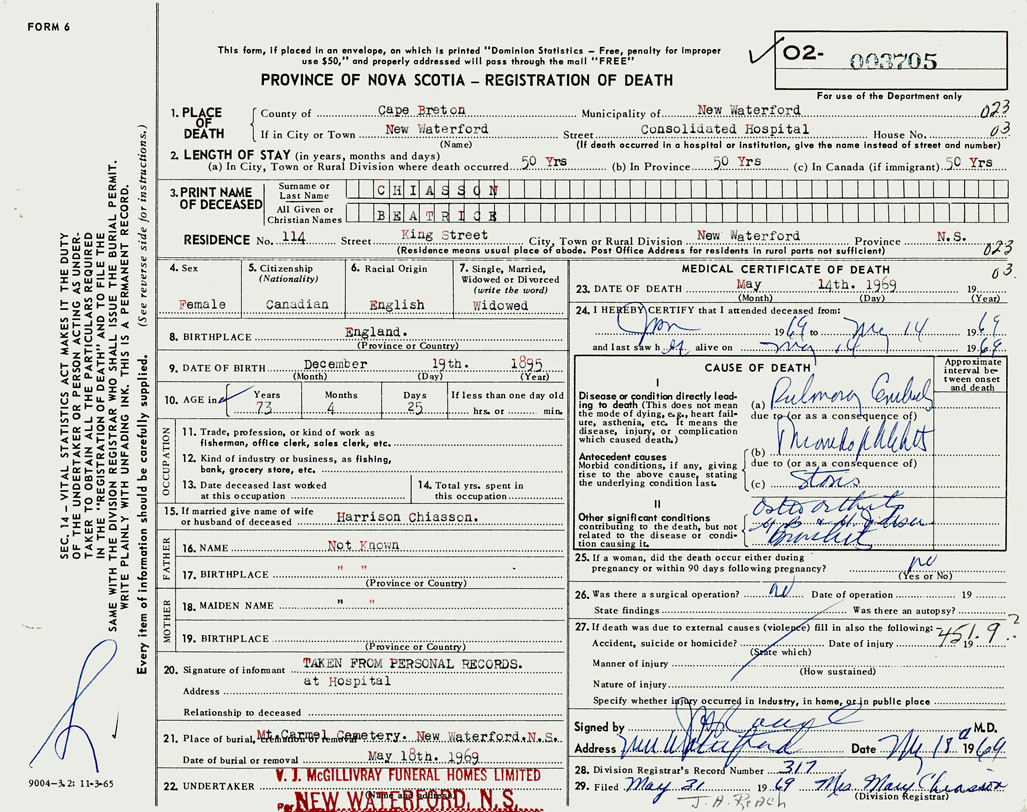 FORM 6
This form, if placed in an envelope, on which is printed "Dominion Statistics – Free, penalty for improper
use $50," and properly addressed will pass through the mail "FREE"
PROVINCE OF NOVA SCOTIA – REGISTRATION OF DEATH
02- 003705
For use of the Department only
1. PLACE OF DEATH
County of Cape Breton Municipality of New Waterford 023
If in City or Town New Waterford Street Consolidated Hospital House No. 03
(Name) (If death occurred in a hospital or institution, give the name instead of street and number)
2. LENGTH OF STAY (in years, months and days)
(a) In City, Town or Rural Division where death occurred 50 Yrs (b) In Province 50 Yrs (c) In Canada (if immigrant) 50 Yrs
3. PRINT NAME OF DECEASED
Surname or Last Name CHIASSON
All Given or Christian Names BEATRICE
RESIDENCE No. 114 Street King Street City, Town or Rural Division New Waterford Province N.S.
(Residence means usual place of abode. Post Office Address for residents in rural parts not sufficient) 023
03.
4. Sex
Female
5. Citizenship
(Nationality)
Canadian
6. Racial Origin
English
7. Single, Married,
Widowed or Divorced
(write the word)
Widowed
8. BIRTHPLACE England.
(Province or Country)
9. DATE OF BIRTH December 19th. 1895
(Month) (Day) (Year)
10. AGE in Years 73 Months 4 Days 25 If less than one day old
hrs. or min.
OCCUPATION
11. Trade, profession, or kind of work as
fisherman, office clerk, sales clerk, etc.
12. Kind of industry or business, as fishing,
bank, grocery store, etc.
13. Date deceased last worked
at this occupation
14. Total yrs. spent in
this occupation
15. If married give name of wife
or husband of deceased Harrison Chiasson.
FATHER
16. NAME Not Known
17. BIRTHPLACE " "
(Province or Country)
MOTHER
18. MAIDEN NAME " "
19. BIRTHPLACE
(Province or Country)
20. Signature of informant TAKEN FROM PERSONAL RECORDS.
at Hospital
Address
Relationship to deceased
21. Place of burial, cremation or removal Mt. Carmel Cemetery. New Waterford. N.S.
Date of burial or removal May 18th. 1969
22. UNDERTAKER V. J. McGILLIVRAY FUNERAL HOMES LIMITED
(Name and address)
Per NEW WATERFORD, N.S.
MEDICAL CERTIFICATE OF DEATH
23. DATE OF DEATH May 14th. 1969 19
(Month) (Day) (Year)
24. I HEREBY CERTIFY that I attended deceased from:
Jan 1969 to May 14 1969
and last saw her alive on May 14 1969
CAUSE OF DEATH
Approximate
interval be-
tween onset
and death
I
Disease or condition directly lead-
ing to death (This does not mean
the mode of dying, e.g., heart fail-
ure, asthenia, etc. It means the
disease, injury, or complication
which caused death.)
(a) Pulmonary
due to (or as a consequence of)
Antecedent causes
Morbid conditions, if any, giving
rise to the above cause, stating
the underlying condition last.
(b)
due to (or as a consequence of)
(c)
II
Other significant conditions
contributing to the death, but not
related to the disease or condi-
tion causing it.
25. If a woman, did the death occur either during
pregnancy or within 90 days following pregnancy? no
(Yes or No)
26. Was there a surgical operation? no Date of operation 19
State findings Was there an autopsy?
27. If death was due to external causes (violence) fill in also the following: 451.9 ?
Accident, suicide or homicide? Date of injury 19
(State which)
Manner of injury
(How sustained)
Nature of injury
Specify whether injury occurred in industry, in home, or in public place
Signed by M.D.
Address New Waterford Date May 18 1969
28. Division Registrar's Record Number 317
29. Filed May 21 1969 Mrs. Mary Chiasson
(Division Registrar)
SEC. 14 – VITAL STATISTICS ACT MAKES IT THE DUTY
OF THE UNDERTAKER OR PERSON ACTING AS UNDER-
TAKER TO OBTAIN ALL THE PARTICULARS REQUIRED
IN THE "REGISTRATION OF DEATH" AND TO FILE THE
SAME WITH THE DIVISION REGISTRAR WHO SHALL ISSUE THE BURIAL PERMIT.
WRITE PLAINLY WITH UNFADING INK. THIS IS A PERMANENT RECORD.
Every item of information should be carefully supplied. (See reverse side for instructions.)
9004-3.2: 11-3-65